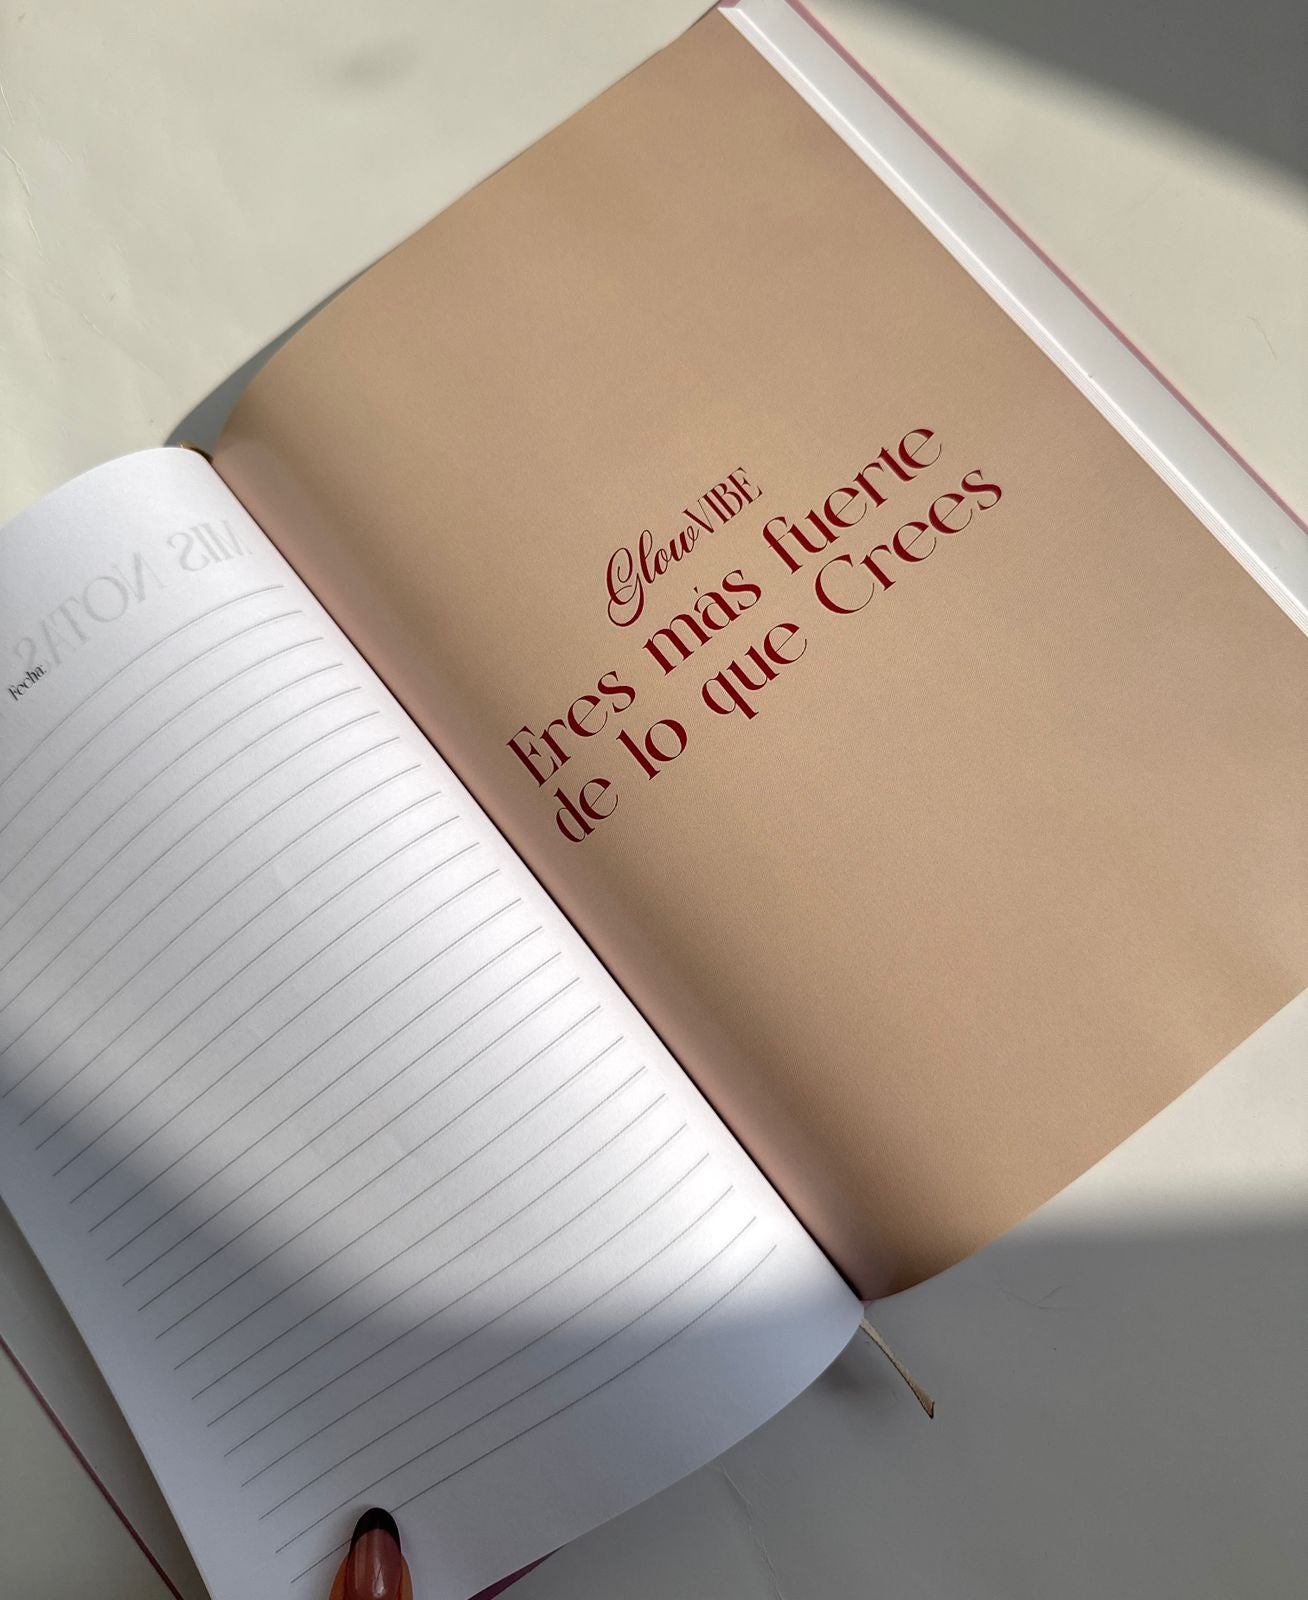 MIS NOTAS
Fecha:
GlowVIBE
Eres más fuerte
de lo que Crees